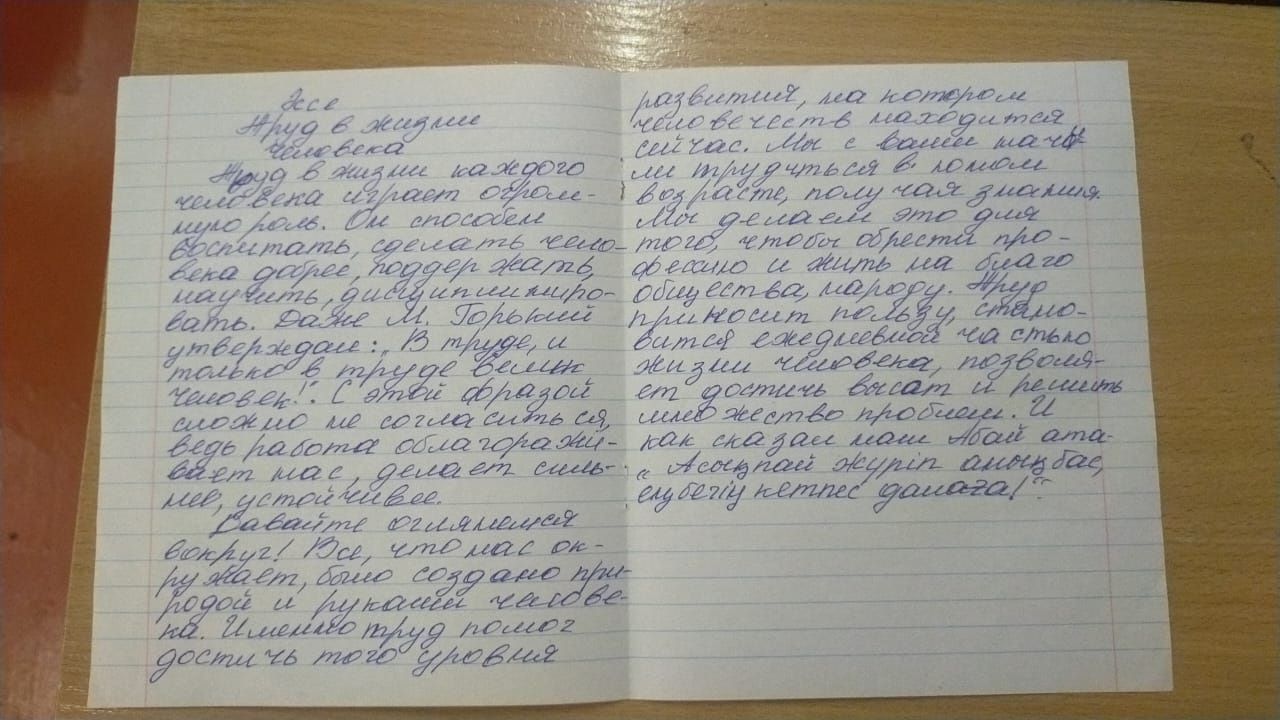 Эссе
Труд в жизни
человека
Труд в жизни каждого
человека играет огром-
ную роль. Он способен
воспитать, сделать чело-
века добрее, поддержать,
научить, дисциплиниро-
вать. Даже М. Горький
утверждал: „В труде, и
только в труде велик
человек!". С этой фразой
сложно не согласиться,
ведь работа облагоражи-
вает нас, делает силь-
нее, устойчивее.
Давайте оглянемся
вокруг! Все, что нас ок-
ружает, было создано при-
родой и руками челове-
ка. Именно труд помог
достичь того уровня
развития, на котором
человечеств находится
сейчас. Мы с вами начи-
ли трудиться в
возрасте, получая знания.
Мы делаем это для
того, чтобы обрести про-
фессию и жить на благо
общества, народу. Труд
приносит пользу, стано-
вится ежедневной частью
жизни человека, позволя-
ет достичь высот и решить
множество проблем. И
как сказал наш Абай ата-
„Асықпай жүріп анық бас,
еңбегің кетпес далаға!".